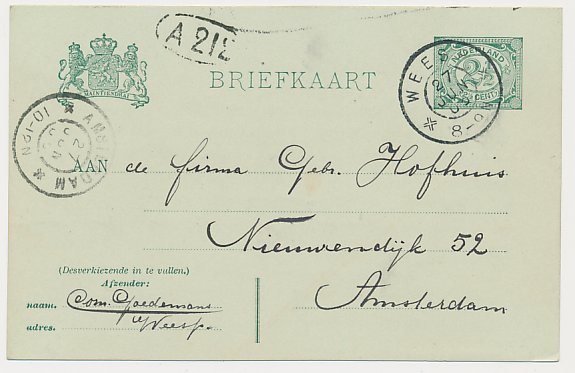 A 212
JE MAINTIENDRAI
BRIEFKAART
NEDERLAND
2½
CENT
WEESP
27 JUN 05
8-9
AMSTERDAM
10-12N
AAN de firma Gebr. Hofhuis
Nieuwendijk 52
Amsterdam
(Desverkiezende in te vullen.)
Afzender:
naam. Com. Goedemans
adres. Weesp.